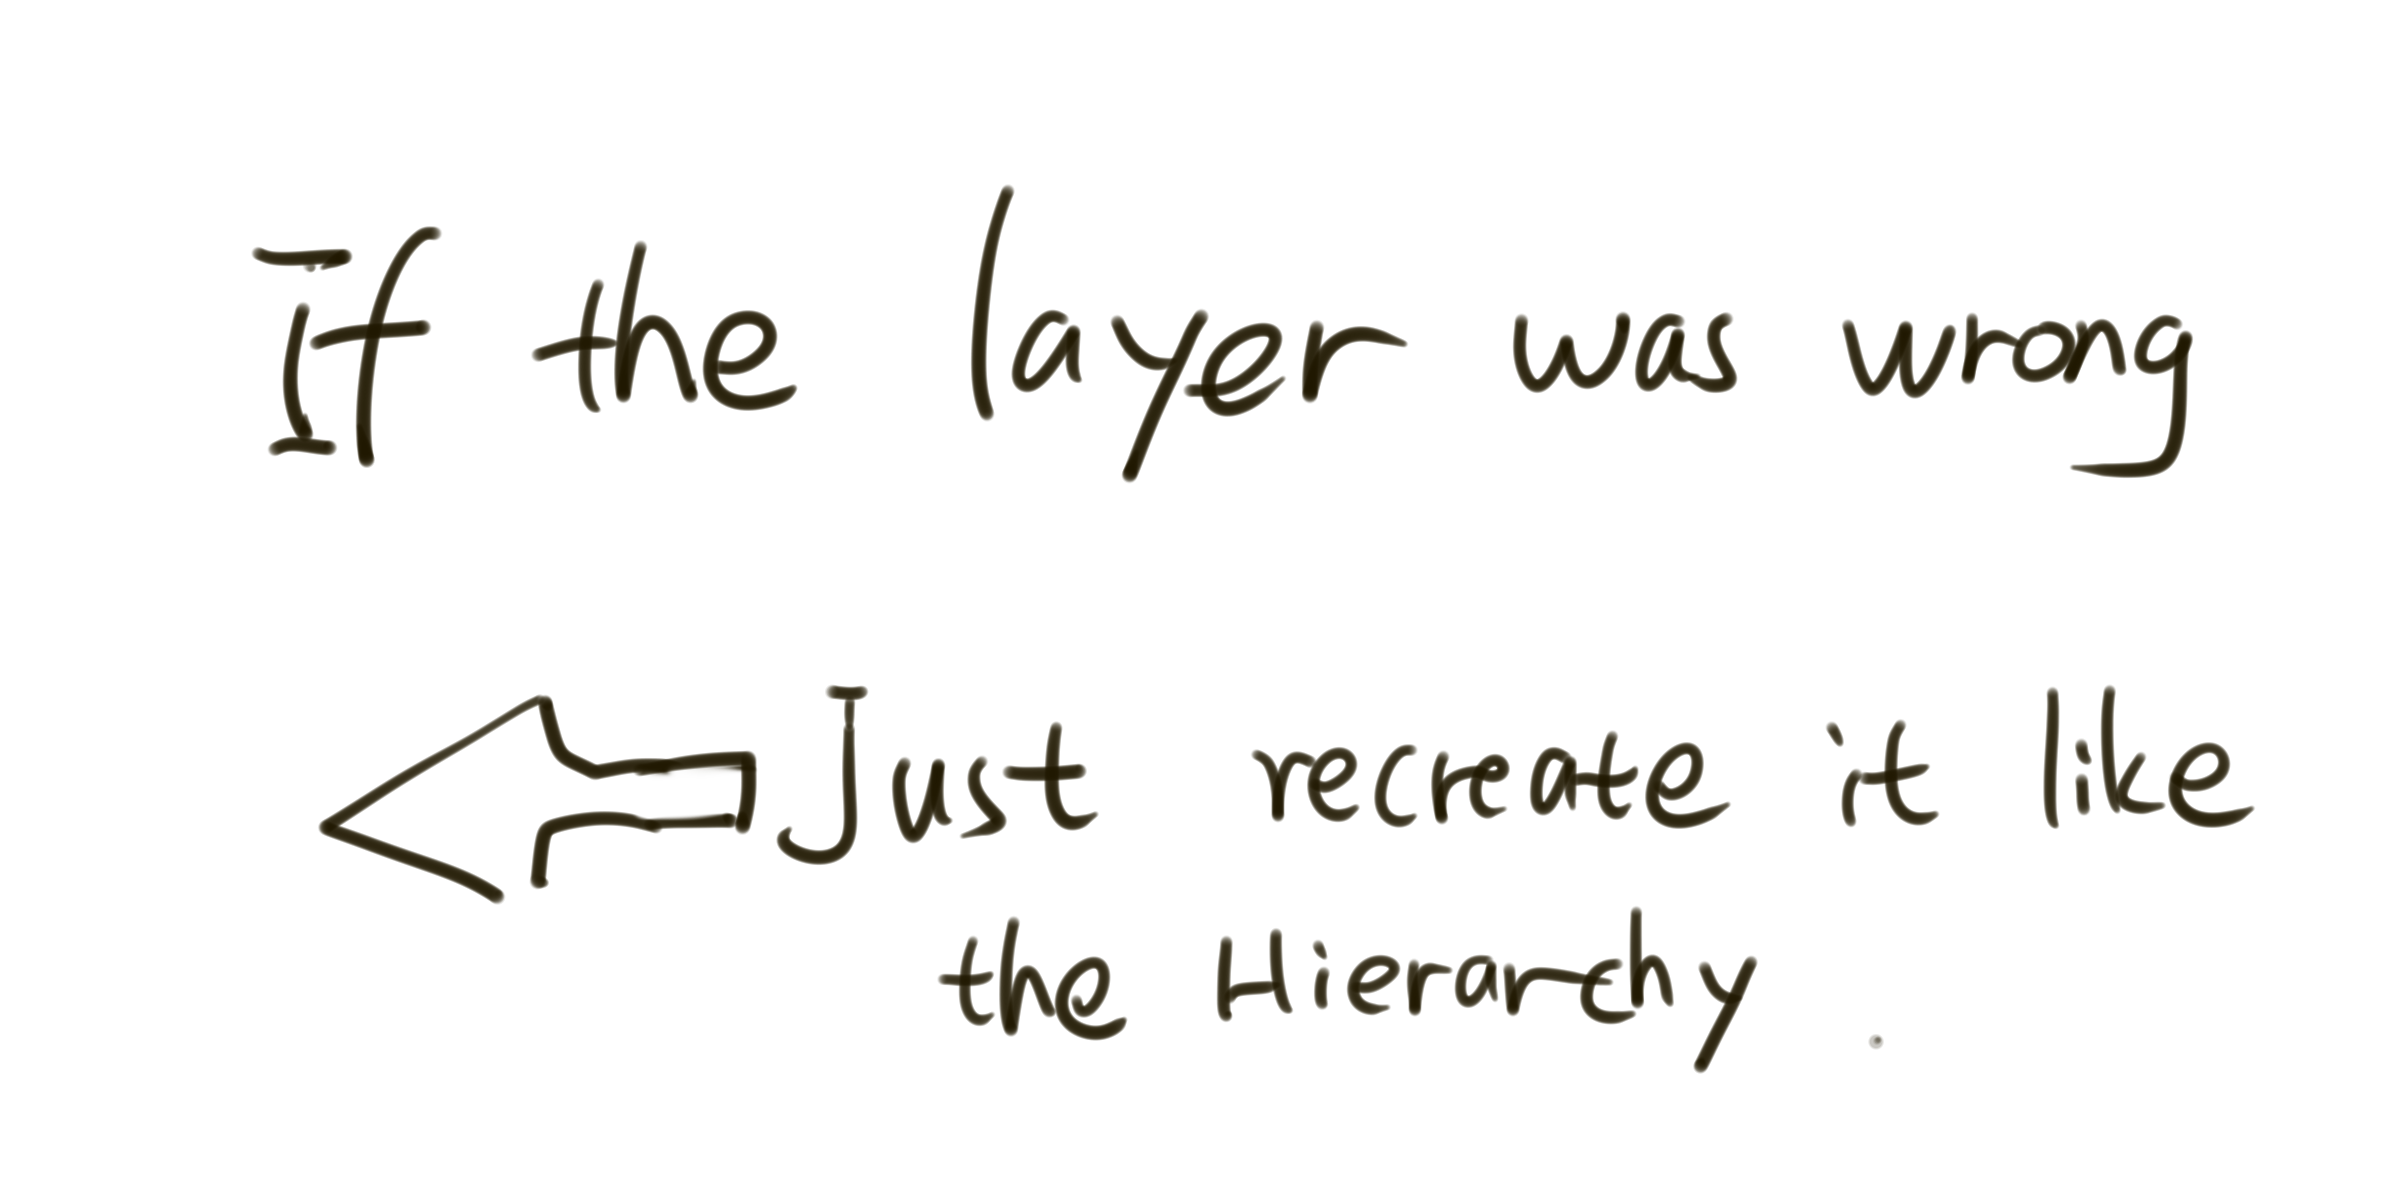 If the layer was wrong
Just recreate it like
the Hierarchy.